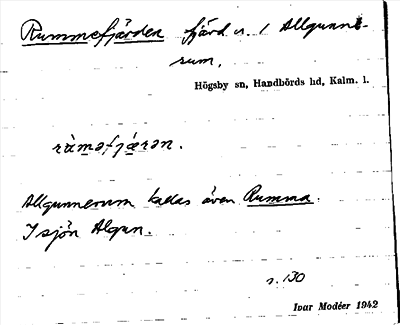 Rummefjärden fjärd n. / Allgunne-
rum.
Högsby sn, Handbörds hd, Kalm. l.
ràməfjæ̀rən.
Allgunnerum kallas även Rumma.
I sjön Algun.
s. 130
Ivar Modéer 1942